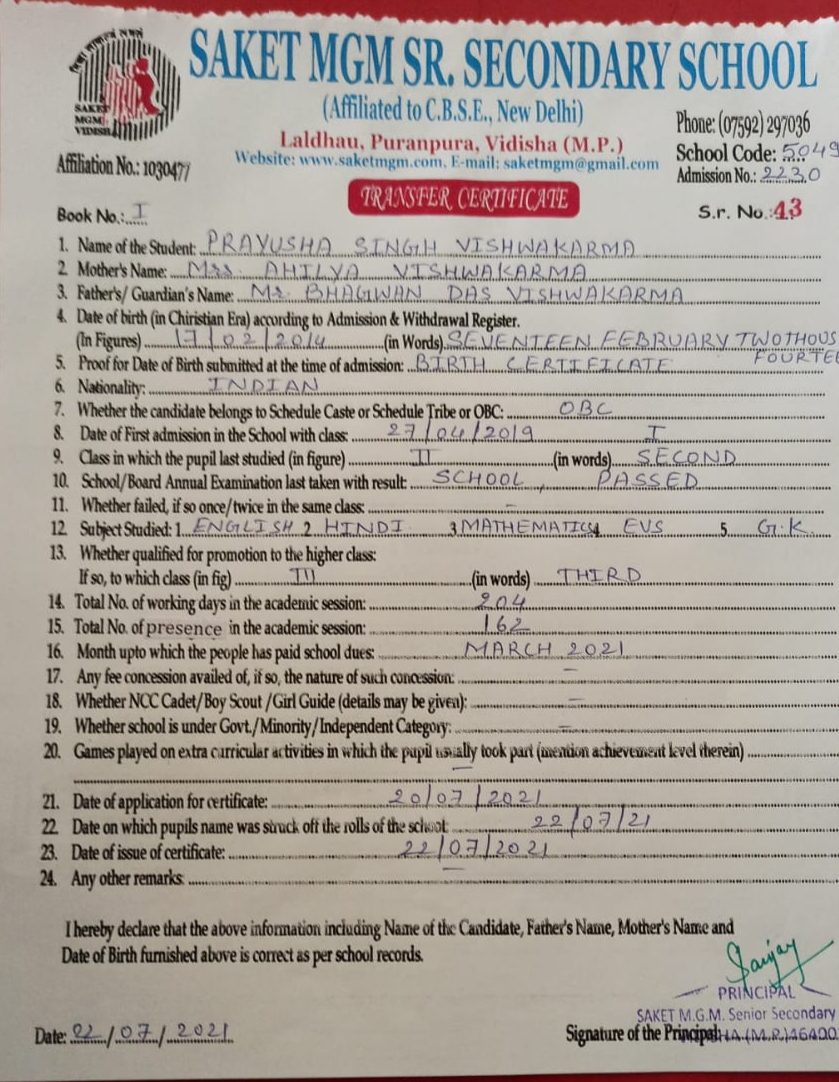 SAKET MGM SR. SECONDARY SCHOOL
(Affiliated to C.B.S.E., New Delhi)
Laldhau, Puranpura, Vidisha (M.P.)
Website: www.saketmgm.com, E-mail: saketmgm@gmail.com
SAKET
MGM
VIDISHA
Affiliation No.: 1030477
Phone: (07592) 297036
School Code: 5049
Admission No.: 2230
TRANSFER CERTIFICATE
Book No.: I
S.r. No.: 43
1. Name of the Student: PRAYUSHA SINGH VISHWAKARMA
2. Mother's Name: Mrs. AHILYA VISHWAKARMA
3. Father's/ Guardian's Name: Mr. BHAGWAN DAS VISHWAKARMA
4. Date of birth (in Chiristian Era) according to Admission & Withdrawal Register.
(In Figures) 17/02/2014 (in Words) SEVENTEEN FEBRUARY TWOTHOUS
FOURTEE
5. Proof for Date of Birth submitted at the time of admission: BIRTH CERTIFICATE
6. Nationality: INDIAN
7. Whether the candidate belongs to Schedule Caste or Schedule Tribe or OBC: OBC
8. Date of First admission in the School with class: 27/04/2019 I
9. Class in which the pupil last studied (in figure) II (in words) SECOND
10. School/Board Annual Examination last taken with result: SCHOOL, PASSED
11. Whether failed, if so once/twice in the same class: –
12. Subject Studied: 1 ENGLISH 2 HINDI 3 MATHEMATICS 4 EVS 5 G.K.
13. Whether qualified for promotion to the higher class:
If so, to which class (in fig) III (in words) THIRD
14. Total No. of working days in the academic session: 204
15. Total No. of presence in the academic session: 162
16. Month upto which the people has paid school dues: MARCH 2021
17. Any fee concession availed of, if so, the nature of such concession: –
18. Whether NCC Cadet/Boy Scout /Girl Guide (details may be given): –
19. Whether school is under Govt./Minority/Independent Category: –
20. Games played on extra curricular activities in which the pupil usually took part (mention achievement level therein)
–
21. Date of application for certificate: 20/07/2021
22. Date on which pupils name was struck off the rolls of the school: 22/07/21
23. Date of issue of certificate: 22/07/2021
24. Any other remarks: –
I hereby declare that the above information including Name of the Candidate, Father's Name, Mother's Name and
Date of Birth furnished above is correct as per school records.
Sanjay
PRINCIPAL
SAKET M.G.M. Senior Secondary
Date: 22/07/2021
Signature of the Principal